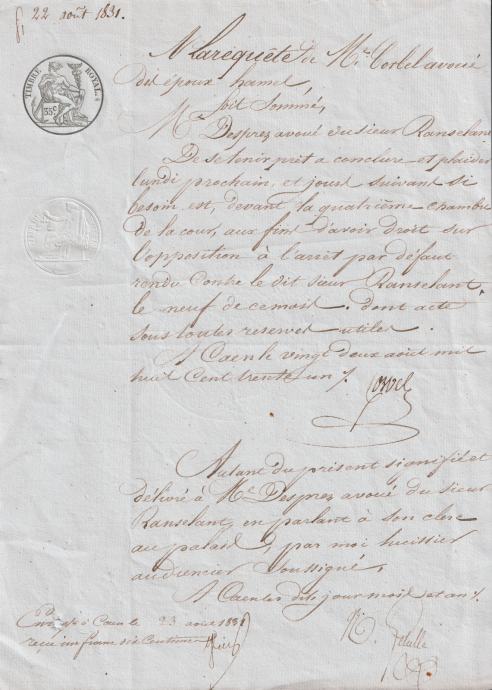 22 août 1831.
TIMBRE ROYAL
35c
A la requête de Me Corbel avoué
des époux hamel,
soit Sommé,
Me Desprez avoué du sieur Ranselant
De se tenir prêt a conclure et plaider
lundi prochain, et jours suivant si
besoin est, devant la quatrième chambre
de la cour, aux fins d'avoir droit sur
l'opposition à l'arrêt par défaut
rendu Contre le dit sieur Ranselant
le neuf de ce mois. dont acte
sous toutes reserves utiles
A Caen le vingt deux août mil
huit Cent trente un
Corbel
Autant du présent signifié et
délivré à Me Desprez avoué du sieur
Ranselant, en parlant à son clerc
au palais, par moi huissier
audiencier Soussigné,
A Caen les dits jour mois et an
à Caen le 23 août 1831
reçu un franc dix Centimes